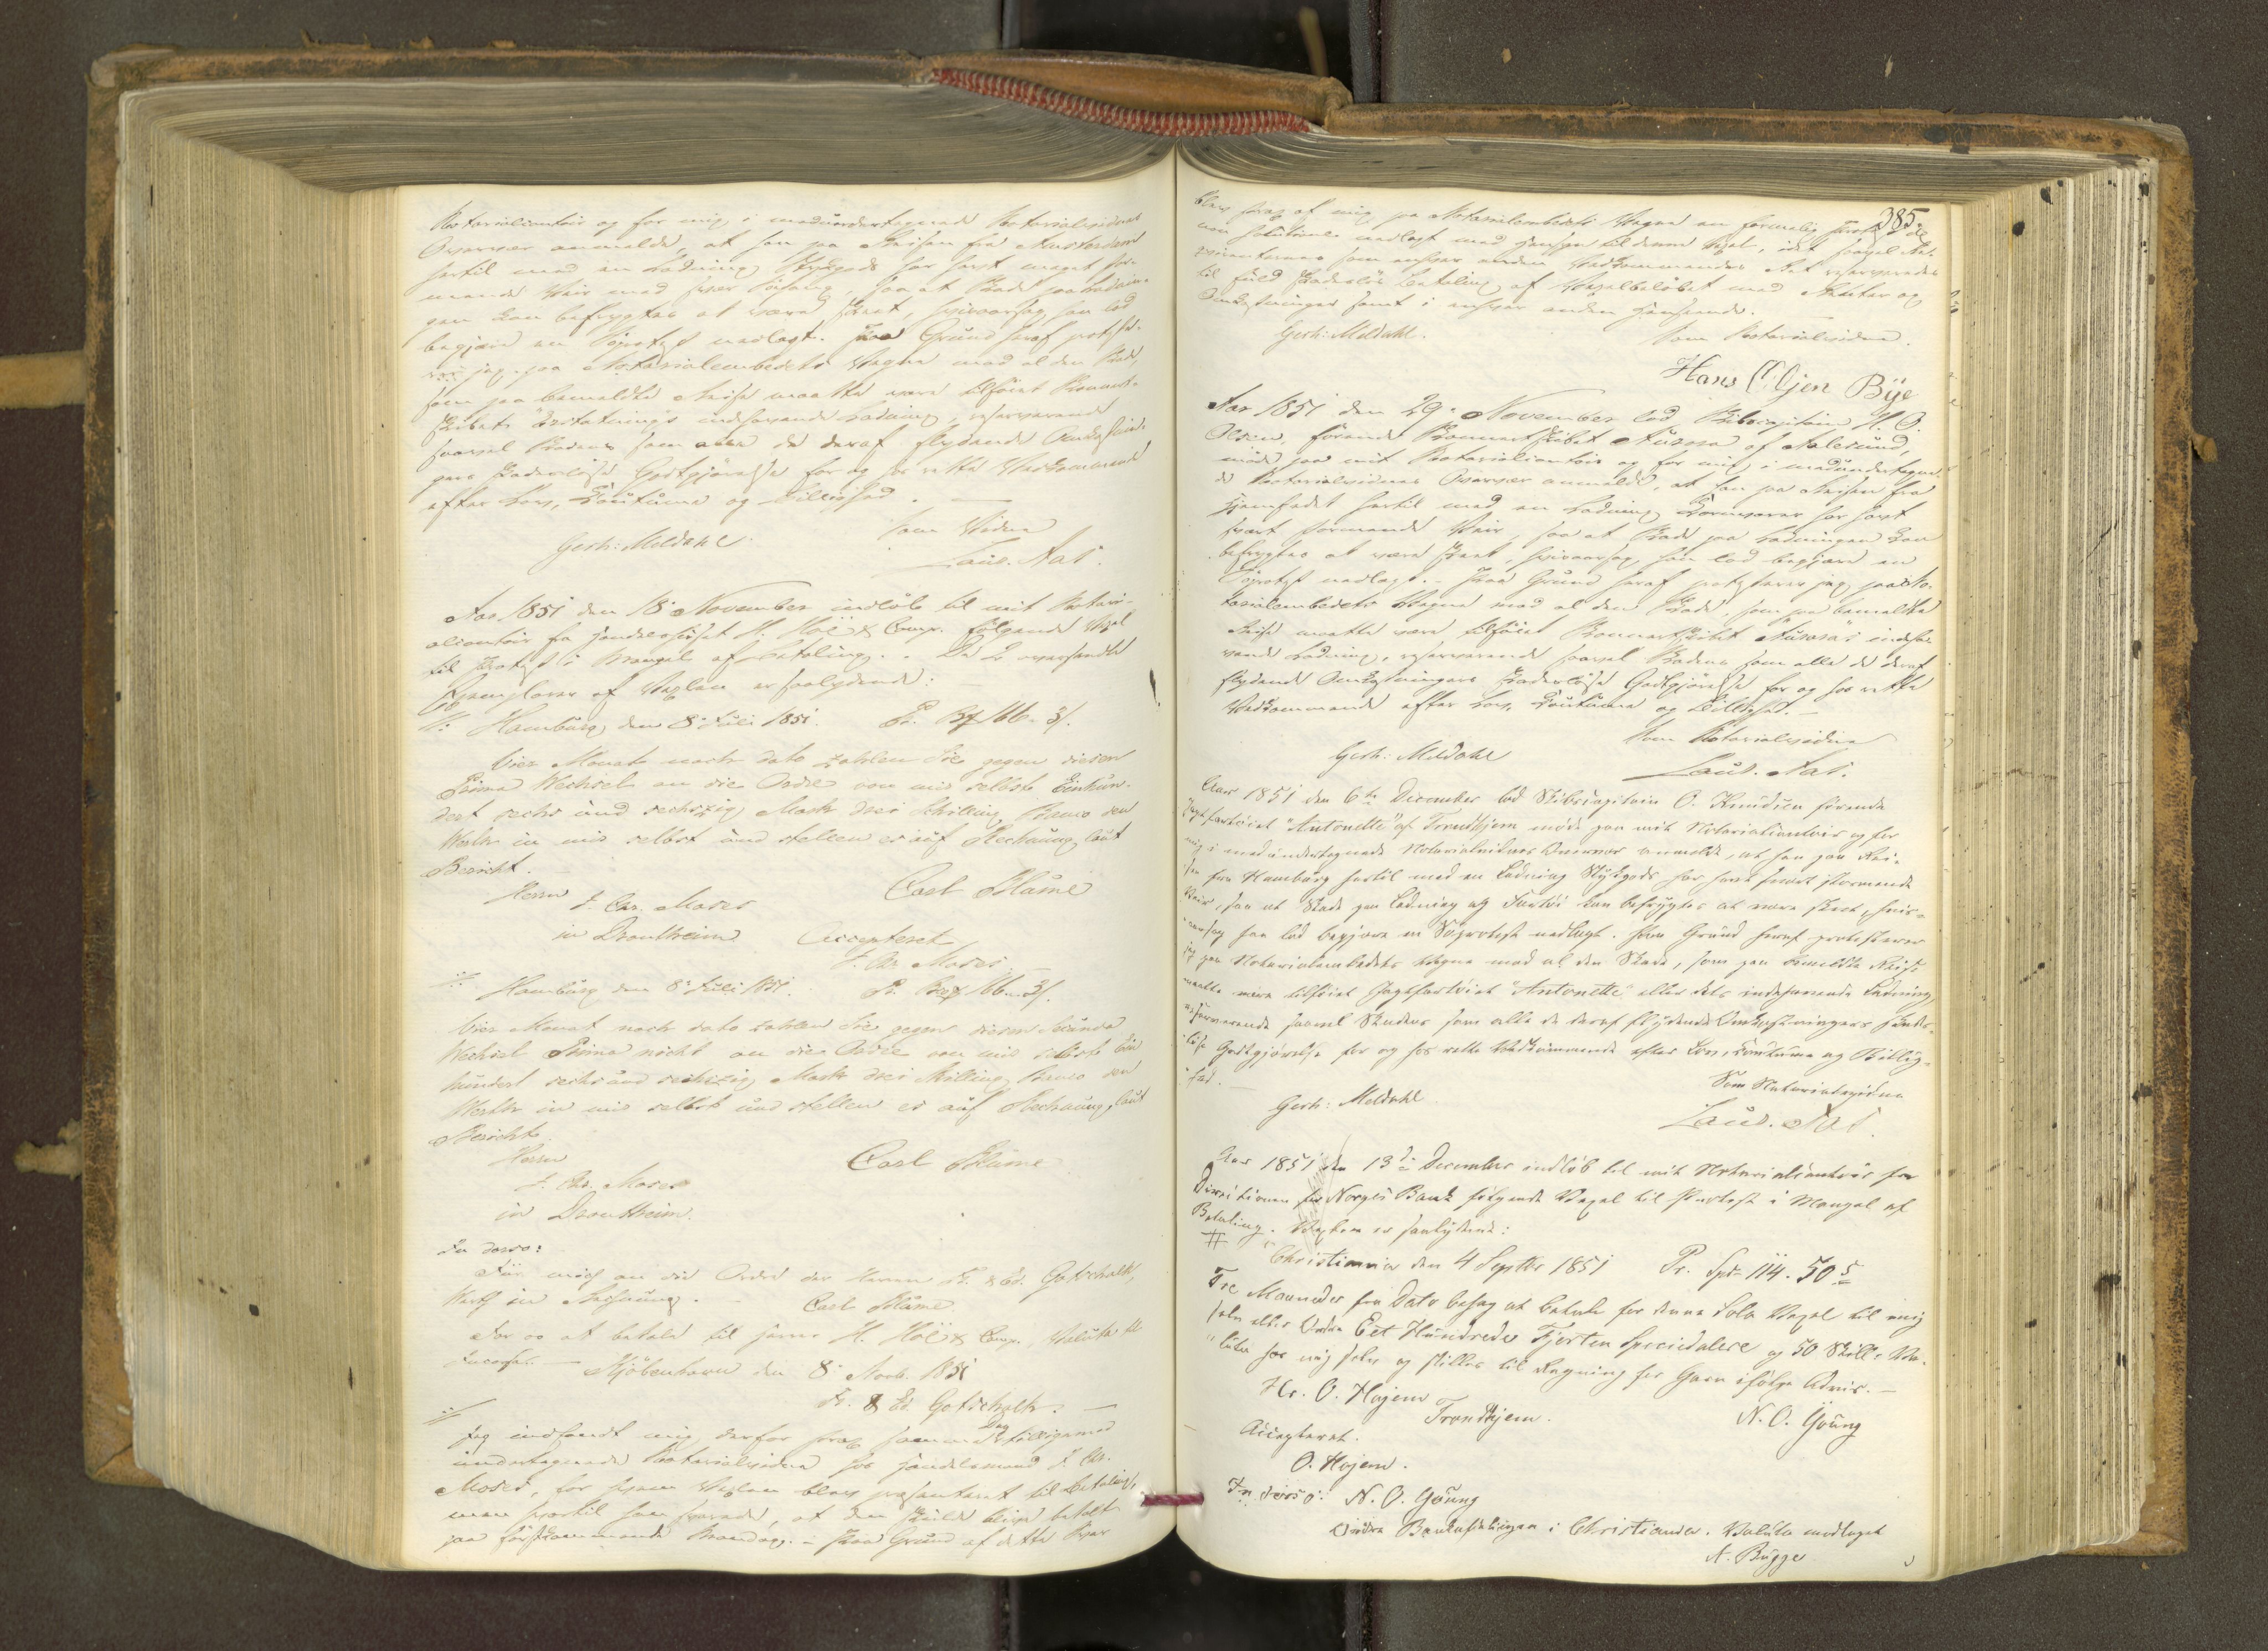 Notarialcontoir og for mig i medundertegnede Notarialvidnes
Overvær anmeldte, at han paa Reisen fra Amsterdam
hertil med en Ladning Stykgods har havt meget stor-
mende Veir med svær Søgang, saa at Skade paa Ladnin-
gen kan befrygtes at være skeet, hvisaarsag han lod
begjære en Søprotest nedlagt. Paa Grund heraf protste-
rer jeg paa Notarialembedets Vegne mod al den Skade,
som paa bemeldte Reise maatte være tilføiet
Skibets indehavende Ladning, reserverende
saavel Skadens som alle de deraf flydende Omkostnin-
gers skadesløse Godtgjørelse for og hos rette Vedkommende
efter Lov, Coutume og Billighed. —
Som Vidne
Gerh: Meldahl. Laur. Aas.
Aar 1851 den 18de November indløb til mit Notari-
alcontoir fra Handelshuset H. Hoë & Comp. følgende Vexel
til Protest i Mangel af Betaling. - De 2 oversendte
Exemplarer af Vexlen er saalydende:
Hamburg den 8 Juli 1851. Pr. 166 - 3/.
Vier Monat nach dato zahlen Sie gegen diesen
Prima Wechsel an die Ordre von mir selbst Einhun-
dert sechs und sechszig Mark drei Schilling Banco den
Werth in mir selbst und stellen es auf Rechnung laut
Bericht.
Herrn Carl Blume
J. Chr. Moses
in Drontheim Accepteret
J. Chr. Moses
Hamburg den 8 Juli 1851. Pr. 166 - 3/.
Vier Monat nach dato zahlen Sie gegen diesen Secunda
Wechsel Prima nicht an die Ordre von mir selbst Ein
hundert sechs und sechszig Mark drei Schilling Banco den
Werth in mir selbst und stellen es auf Rechnung laut
Bericht.
Herrn Carl Blume
J. Chr. Moses
in Drontheim.
In dorso:
Für mich an die Ordre der Herren & Ed. Gotschalk,
Werth in Rechnung. Carl Blume.
For os at betale til Herrer H. Hoë & Comp., Valuta til
Incasso. — Kjöbenhavn den 8 Novb. 1851
& Ed. Gotschalk. —
Jeg indfandt mig derfor strax samme Dag tilligemed
undertegnede Notarialvidne hos Handelsmand J. Chr.
Moses, for hvem Vexlen blev præsenteret til Betaling,
men hvortil han svarede, at den skulde blive betalt
paa førstkommende Mandag. - Paa Grund af dette Svar
385
blev strax af mig paa Notarialembedets Vegne en formelig Protest de
non solutione nedlagt med Hensyn til denne Vexel, idet saavel Re-
qvirenternes som enhver anden Vedkommendes Ret reserveredes
til fuld skadesløs Betaling af Vexelbeløbet med Renter og
Omkostninger samt i enhver anden Henseende.
Gerh: Meldahl. Som Notarialvidne.
Hans Bÿe
Aar 1851 den 29. November lod Skibscapitain H. O.
Olsen, førende Aurora af Aalesund,
møde paa mit Notarialcontoir og for mig i medundertegne-
de Notarialvidnes Overvær anmelde, at han paa Reisen fra
hertil med en Ladning Kornvarer har havt
svært stormende Veir, saa at Skade paa Ladningen kan
befrygtes at være skeet, hvisaarsag han lod begjære en
Søprotest nedlagt. - Paa Grund heraf protesterer jeg paa No-
tarialembedets Vegne mod al den Skade, som paa bemeldte
Reise maatte være tilføiet "Aurora"s indeha-
vende Ladning, reserverende saavel Skadens som alle de deraf
flydende Omkostningers skadesløse Godtgjørelse for og hos rette
Vedkommende efter Lov, Coutume og Billighed. —
Som Notarialvidne
Gerh: Meldahl Laur. Aas.
Aar 1851 den 6te December lod Skibscapitain O. Knudsen førende
Jagtfartøiet "Antonette" af Trondhjem møde paa mit Notarialcontoir og for
mig i medundertegnede Notarialvidnes Overvær anmelde, at han paa Rei-
sen fra Hamburg hertil med en Ladning Stykgods har havt svært stormende
Veir, saa at Skade paa Ladning og Fartøi kan befrygtes at være skeet, hvis-
aarsag han lod begjære en Søprotest nedlagt. Paa Grund heraf protesterer
jeg paa Notarialembedets Vegne mod al den Skade, som paa bemeldte Reise
maatte være tilføiet Jagtfartøiet "Antonette" eller dets indehavende Ladning,
reserverende saavel Skadens som alle de deraf flydende Omkostningers skades-
løse Godtgjørelse for og hos rette Vedkommende efter Lov, Coutume og Billig-
hed. — Som Notarialvidne
Gerh: Meldahl. Laur. Aas.
Aar 1851 den 13de December indløb til mit Notarialcontoir fra
Directionen for Norges Bank følgende Vexel til Protest i Mangel af
Betaling. Vexlen er saalydende:
Christiania den 4 Septbr 1851 Pr. Spd. 114. 50 s
Tre Maaneder fra Dato behag at betale for denne Sola Vexel til mig
selv eller Ordre Eet Hundrede Fjorten Speciedalere og 50 Skill. Va-
luta hos mig selv og stilles til Regning for Garn ifølge Advis. —
Hr. O. Hojem
Trondhjem. N. O. Young
Accepteret.
O. Hojem.
In dorso: N. O. Young
Ordre Bankafdelingen i Christiania. Valuta modtaget
N. Bugge